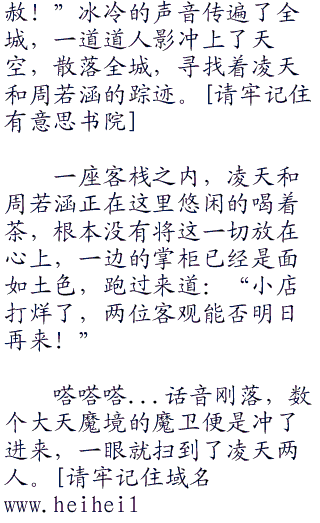 赦！”冰冷的声音传遍了全
城，一道道人影冲上了天
空，散落全城，寻找着凌天
和周若涵的踪迹。[请牢记住
有意思书院]
一座客栈之内，凌天和
周若涵正在这里悠闲的喝着
茶，根本没有将这一切放在
心上，一边的掌柜已经是面
如土色，跑过来道：“小店
打烊了，两位客观能否明日
再来！”
嗒嗒嗒...话音刚落，数
个大天魔境的魔卫便是冲了
进来，一眼就扫到了凌天两
人。[请牢记住域名
www.heihei1